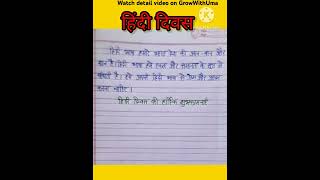 Watch detail video on GrowWithUma
हिंदी दिवस
हिंदी भाषा हमारे भारत देश की आन-बान और
शान है। हिंदी भाषा हमें एकता और समानता के सूत्र में
बांधती है। हमें अपनी हिंदी भाषा से प्रेम और आदर
करना चाहिए।
हिंदी दिवस की हार्दिक शुभकामनाएं